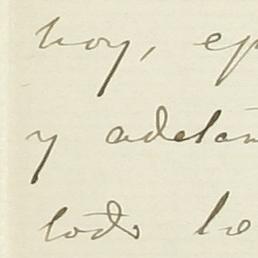 hoy, ep
y adelan
todo lo